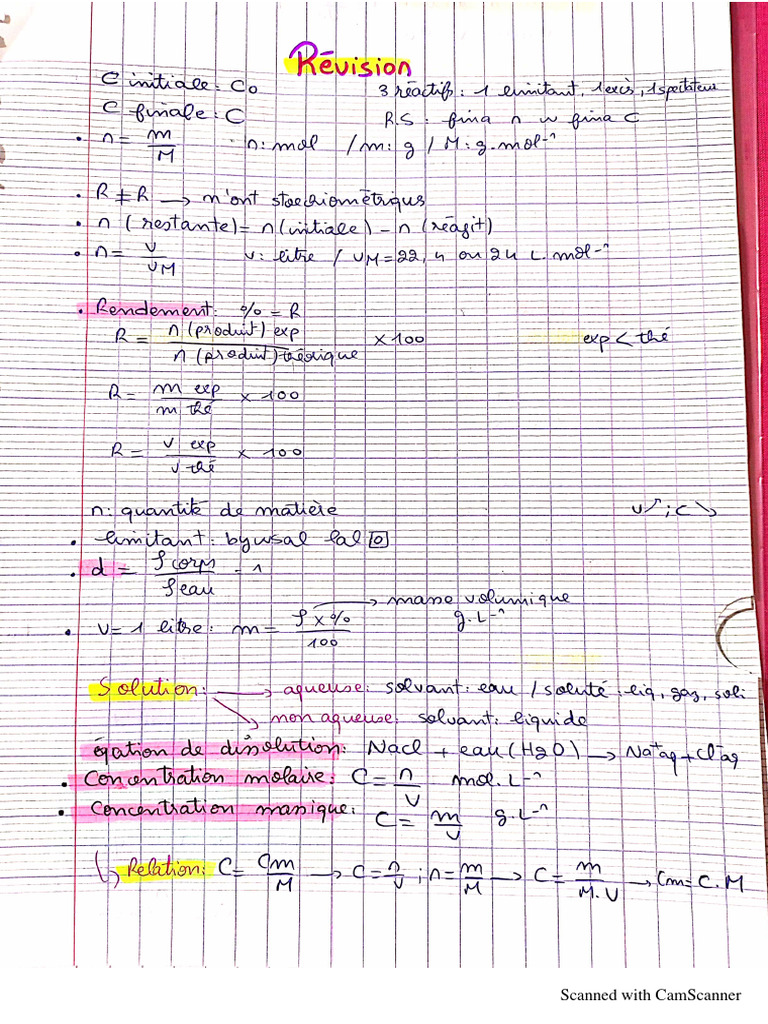 Révision
C initiale : C0
3 réactifs : 1 limitant, 1 excès, 1 spectateur
C finale : C
R.S : fina n w fina C
• n = m/M n : mol / m : g / M : g.mol⁻¹
• R ≠ R → n'ont stoechiométriqus
• n (restante) = n (initiale) - n (réagit)
• n = V/VM V : litre / VM = 22,4 ou 24 L.mol⁻¹
• Rendement : % = R
R = n (produit) exp / n (produit) théorique × 100 exp < thé
R = m exp / m thé × 100
R = v exp / v thé × 100
n : quantité de matière v↗ ; C↘
• limitant : bywsal lal 0
• d = ρ corps / ρ eau - 1
→ masse volumique
• V = 1 litre : m = ρ × % / 100 g.L⁻¹
Solution : → aqueuse : solvant : eau / soluté : liq, gaz, soli
→ non aqueuse : solvant : liquide
éqation de dissolution : Nacl + eau (H2O) → Na⁺aq + Cl⁻aq
• Concentration molaire : C = n/V mol.L⁻¹
• Concentration massique : C = m/V g.L⁻¹
↳ Relation : C = Cm/M → C = n/V ; n = m/M → C = m/M.V → Cm = C.M
Scanned with CamScanner